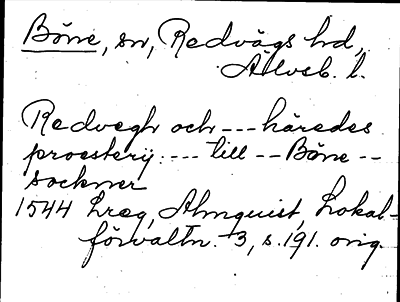 Böne, sn, Redvägs hd,
Älvsb. l.
Redvegh och --- häredes
proesterij :--- till -- Böne --
sockner
1544 Lreg, Almquist, Lokal-
förvaltn. 3, s. 191. orig.